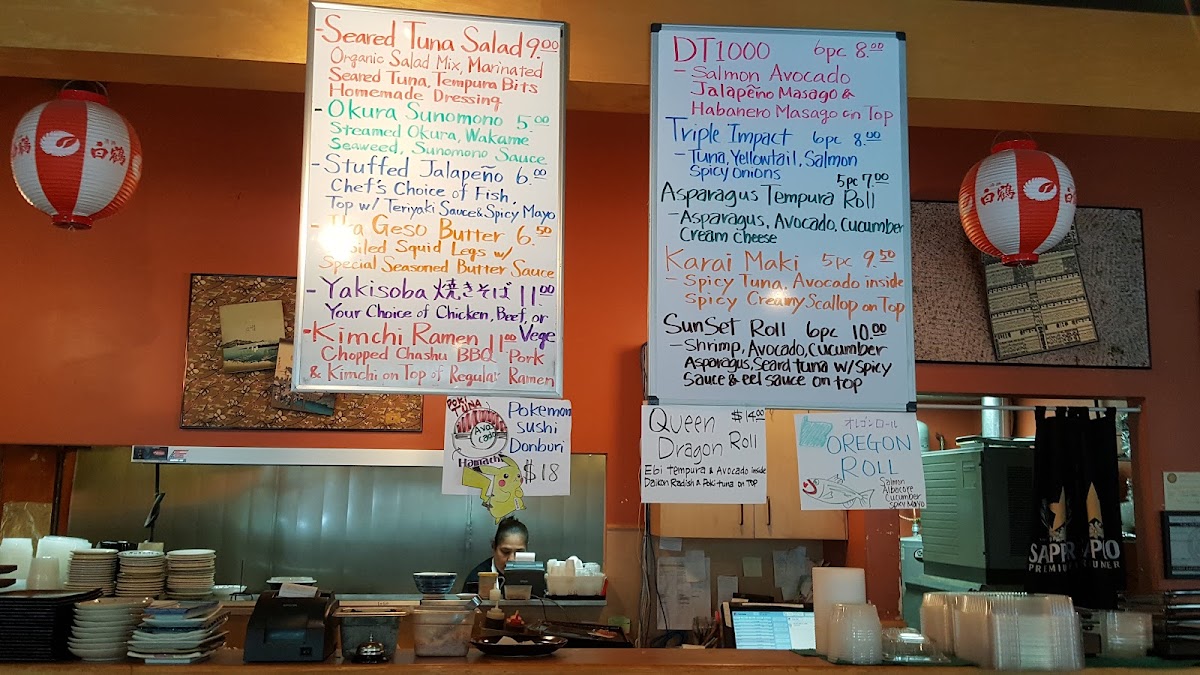 -Seared Tuna Salad 9.00
Organic Salad Mix, Marinated
Seared Tuna, Tempura Bits
Homemade Dressing
-Okura Sunomono 5.00
Steamed Okura, Wakame
Seaweed, Sunomono Sauce
-Stuffed Jalapeño 6.00
Chef's Choice of Fish,
Top w/ Teriyaki Sauce & Spicy Mayo
Geso Butter 6.50
Squid Legs w/
Special Seasoned Butter Sauce
-Yakisoba 焼きそば 11.00
Your Choice of Chicken, Beef, or
Vege
-Kimchi Ramen 11.00
Chopped Chashu BBQ Pork
& Kimchi on Top of Regular Ramen
DT1000 6pc 8.00
-Salmon Avocado
Jalapeño Masago &
Habanero Masago on Top
Triple Impact 6pc 8.00
-Tuna, Yellowtail, Salmon
Spicy onions
5pc 7.00
Asparagus Tempura Roll
-Asparagus, Avocado, Cucumber
Cream cheese
Karai Maki 5pc 9.50
-Spicy Tuna, Avocado inside
Spicy Creamy Scallop on Top
SunSet Roll 6pc 10.00
-Shrimp, Avocado, Cucumber
Asparagus, Seard tuna w/ spicy
Sauce & eel sauce on top
POKI TUNA
Avo
cado
Hamachi
Pokemon
Sushi
Donburi
$18
Queen $14.00
Dragon Roll
Ebi tempura & Avocado inside
Daikon Radish & Poki tuna on Top
オレゴンロール
OREGON
ROLL
Salmon
Albacore
Cucumber
Spicy Mayo
白鶴
白鶴
SAPPORO
PREMIUM